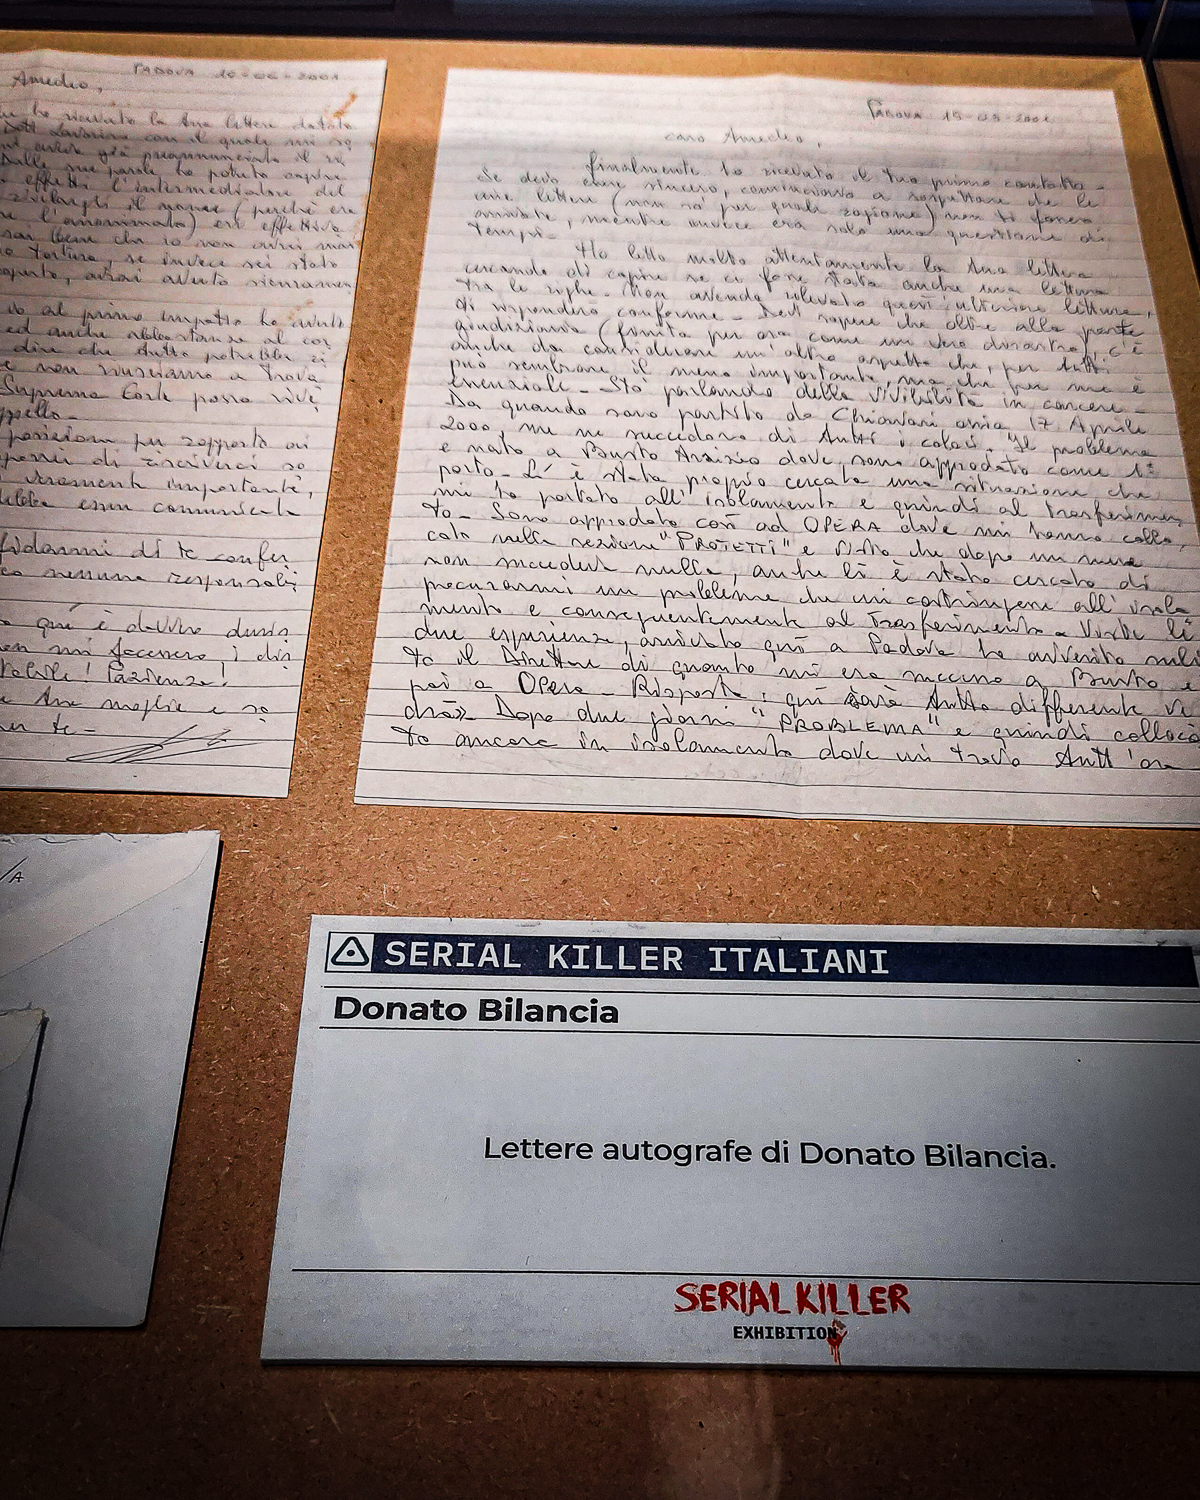 PADOVA 10-06-2001
Amedeo,
ho ricevuto la tua lettera datata
con il quale mi
già preannunciato il
sue parole ho potuto capire
effetti l'intermediatore del
il nome (perchè era
l'anonimato) era effettivo
bene che io non avrei mai
tortura, se invece sei stato
avrai avuto
al primo impatto ho avuto
ed anche abbastanza al cor
dire che tutto potrebbe
e non riusciamo a trova
Suprema Corte possa
ppello-
per rapporto ai
di iscriverci
veramente importante,
essere comunicata
fidarmi di te confer
nessuna responsabi
quí è
non mi facessero, i
! Pazienza!
tua moglie e
te-
PADOVA 15-05-2001
caro Amedeo,
finalmente ho ricevuto il tuo primo contatto-
Se devo essere sincero, cominciavo a sospettare che le
mie lettere (non sò per quale ragione) non ti fossero
arrivate, mentre invece era solo una questione di
tempi-
Ho letto molto attentamente la tua lettera
cercando di capire se ci fosse stata anche una lettura
tra le righe- Non avendo rilevato quest'ulteriore lettura,
ti risponderò conforme- Devi sapere che oltre alla parte
giudiziaria (finita per ora come un vero disastro), c'è
anche da considerare un'altro aspetto che, per tutti,
può sembrare il meno importante, ma che per me è
essenziale- Stò parlando della VIVIBILITÀ in carcere-
Da quando sono partito da Chiavari 17 Aprile
2000, me ne succedono di tutti i colori. Il problema
è nato a Busto Arsizio dove sono approdato come 1ª
porto- Lí è stata proprio cercata una situazione che
mi ha portato all'isolamento e quindi al trasferimen
to- Sono approdato così ad OPERA dove mi hanno collo,
cato nella sezione "PROTETTI" e visto che dopo un mese
non succedeva nulla, anche lí è stato cercato di
procurarmi un problema che mi costringesse all'isola
mento e conseguentemente al trasferimento- Viste le
due esperienze, arrivato quí a Padova ho avvertito subi
to il Direttore di quanto mi era successo a Busto e
poi a Opera- Risposta: quí sarà tutto differente ve
drà» Dopo due giorni "PROBLEMA" e quindi colloca
to ancora in isolamento dove mi trovo tutt'ora
/A
SERIAL KILLER ITALIANI
Donato Bilancia
Lettere autografe di Donato Bilancia.
SERIAL KILLER
EXHIBITION